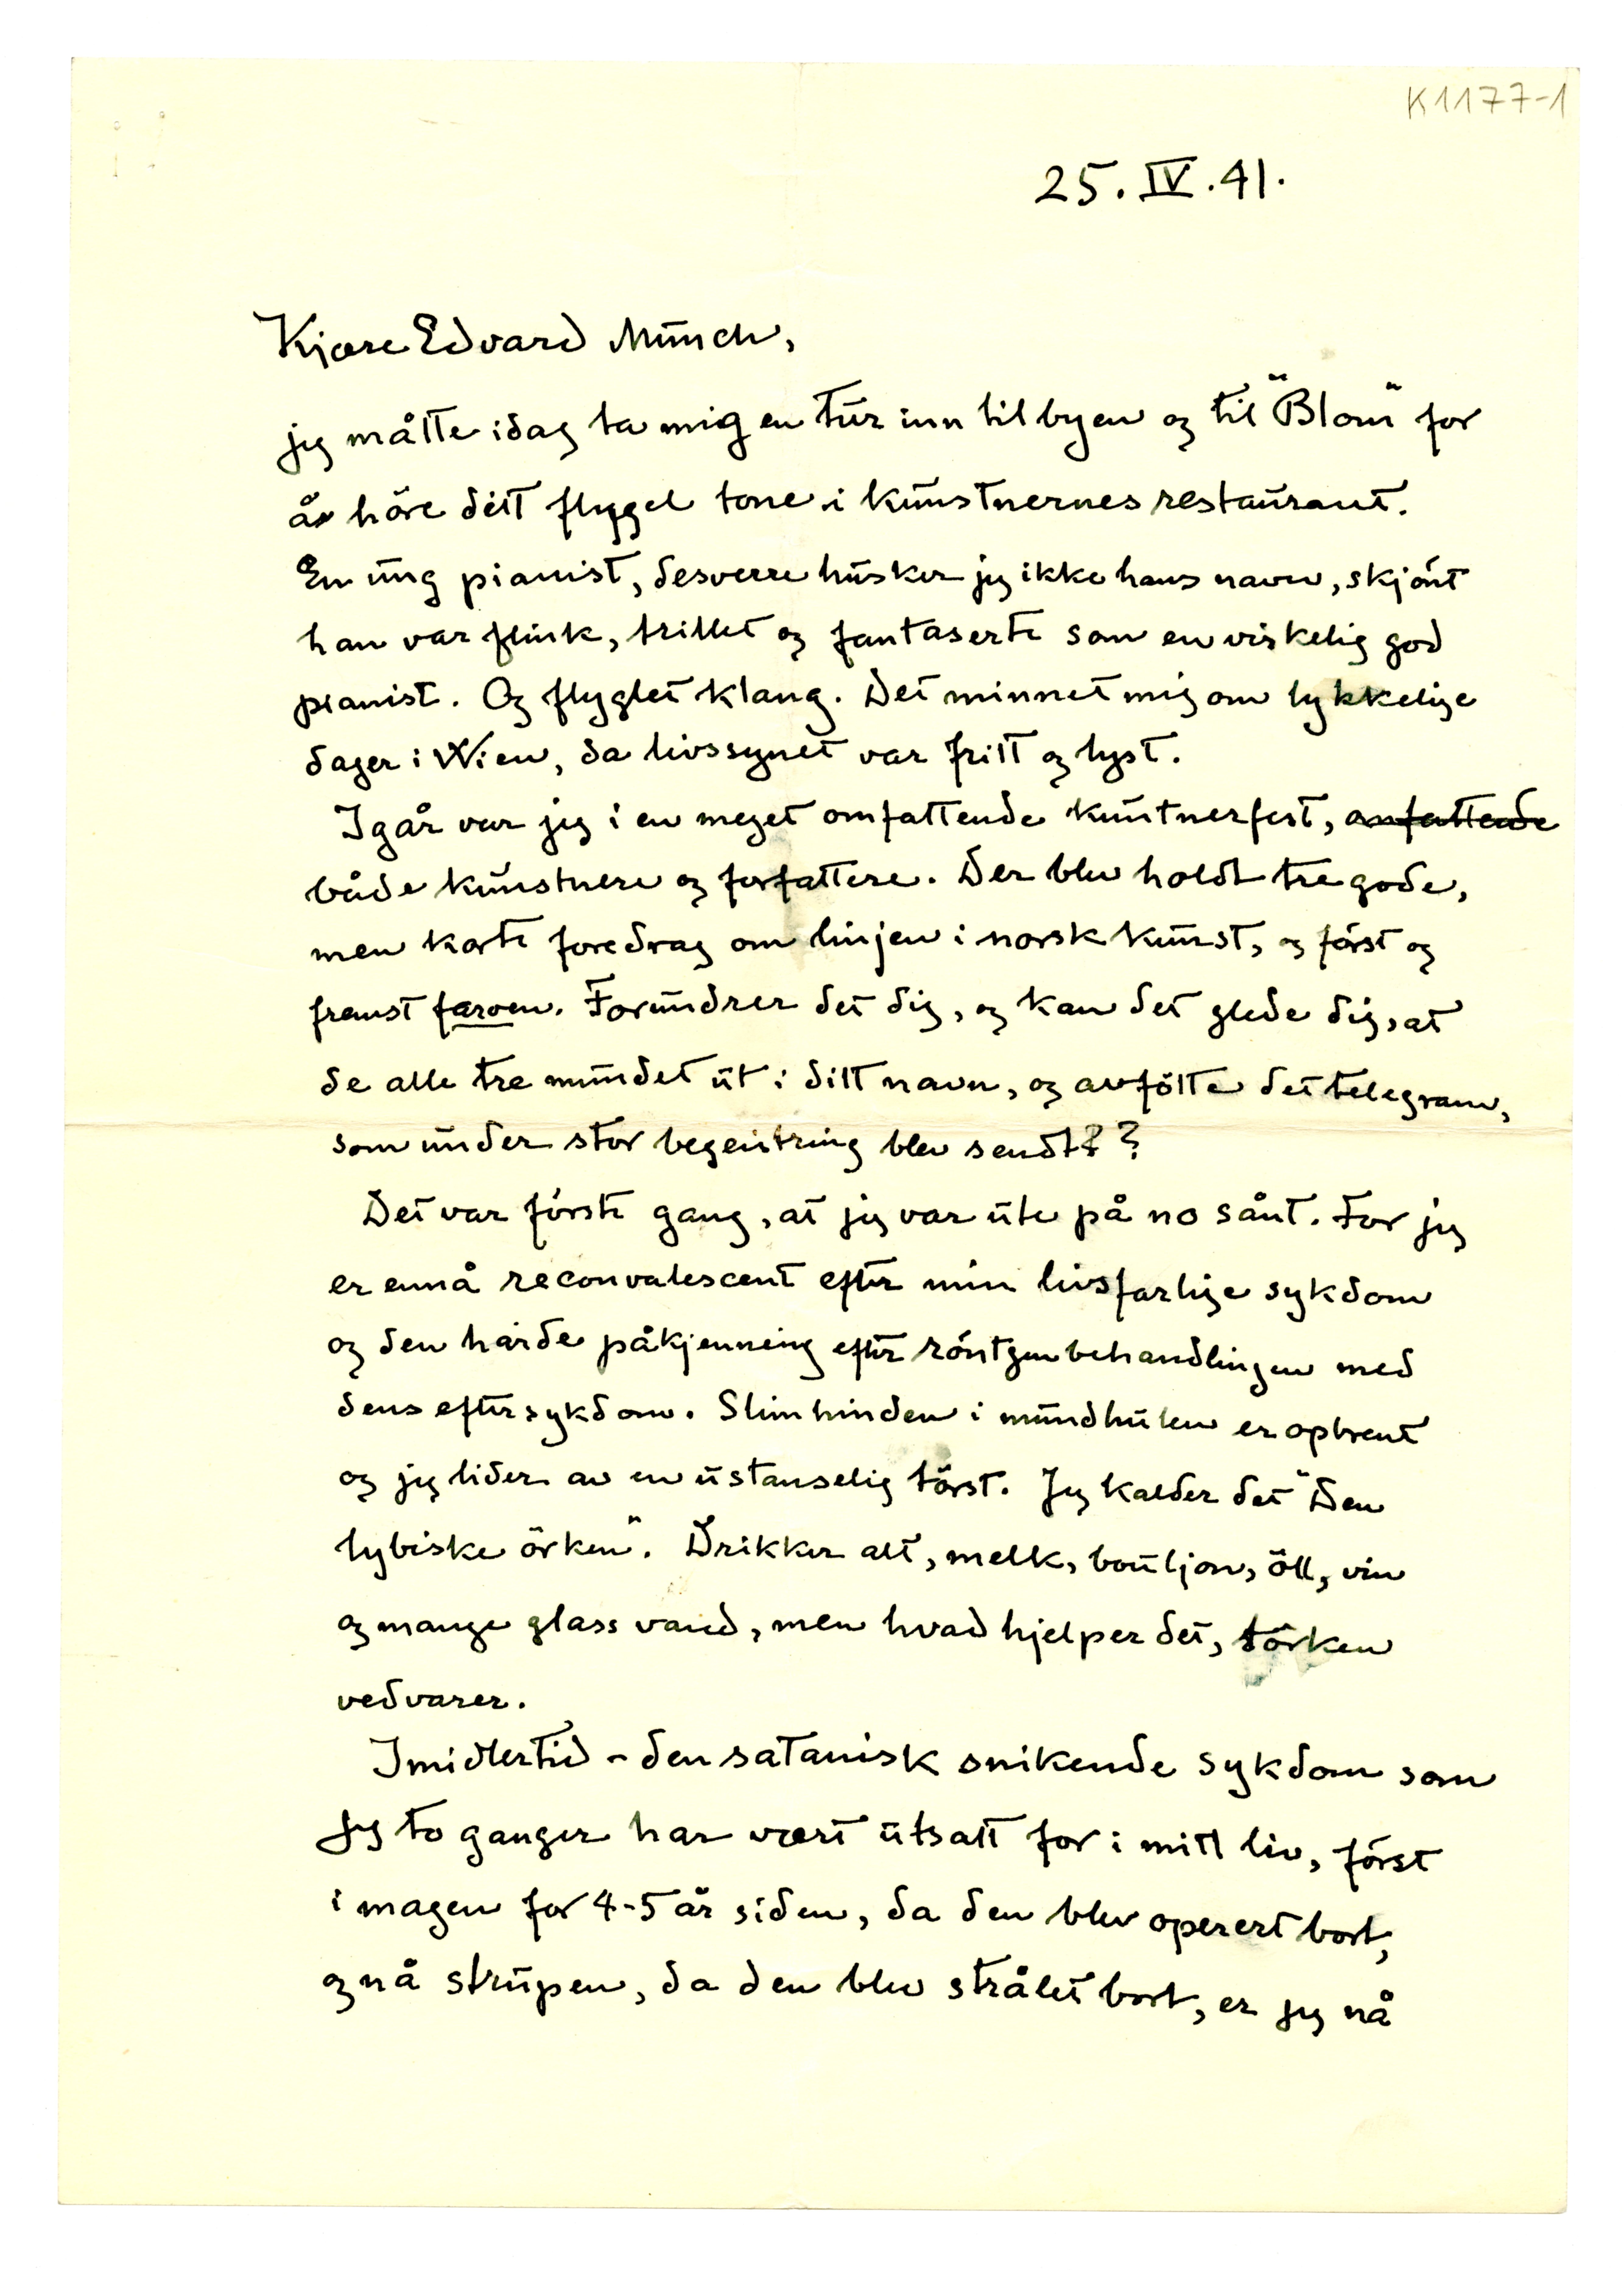 K1177-1
25. IV. 41.
Kjære Edvard Munch,
jeg måtte idag ta mig en tur inn til byen og til "Blom" for
å høre ditt flygel tone i kunstnernes restaurant.
En ung pianist, desverre husker jeg ikke hans navn, skjönt
han var flink, trillet og fantaserte som en virkelig god
pianist. Og flyglet klang. Det minnet mig om lykkelige
dager i Wien, da livssynet var fritt og lyst.
Igår var jeg i en meget omfattende kunstnerfest, omfattende
både kunstnere og forfattere. Der blev holdt tre gode,
men korte foredrag om linjen i norsk kunst, og först og
fremst farven. Forundrer det dig, og kan det glede dig, at
de alle tre mundet ut i ditt navn, og avfötte det telegram,
som under stor begeistring blev sendt??
Det var förste gang, at jeg var ute på no sånt. For jeg
er ennå reconvalescent efter min livsfarlige sykdom
og den hårde påkjenning efter röntgenbehandlingen med
dens eftersykdom. Slimhinden i mundhulen er opbrent
og jeg lider av en ustanselig törst. Jeg kalder det "Den
lybiske örken". Drikker alt, melk, bouljon, öll, vin
og mange glass vand, men hvad hjelper det, törken
vedvarer.
Imidlertid - den satanisk snikende sykdom som
jeg to ganger har vært utsatt for i mitt liv, först
i magen for 4-5 år siden, da den blev operert bort,
og nå strupen, da den blev strålet bort, er jeg nå